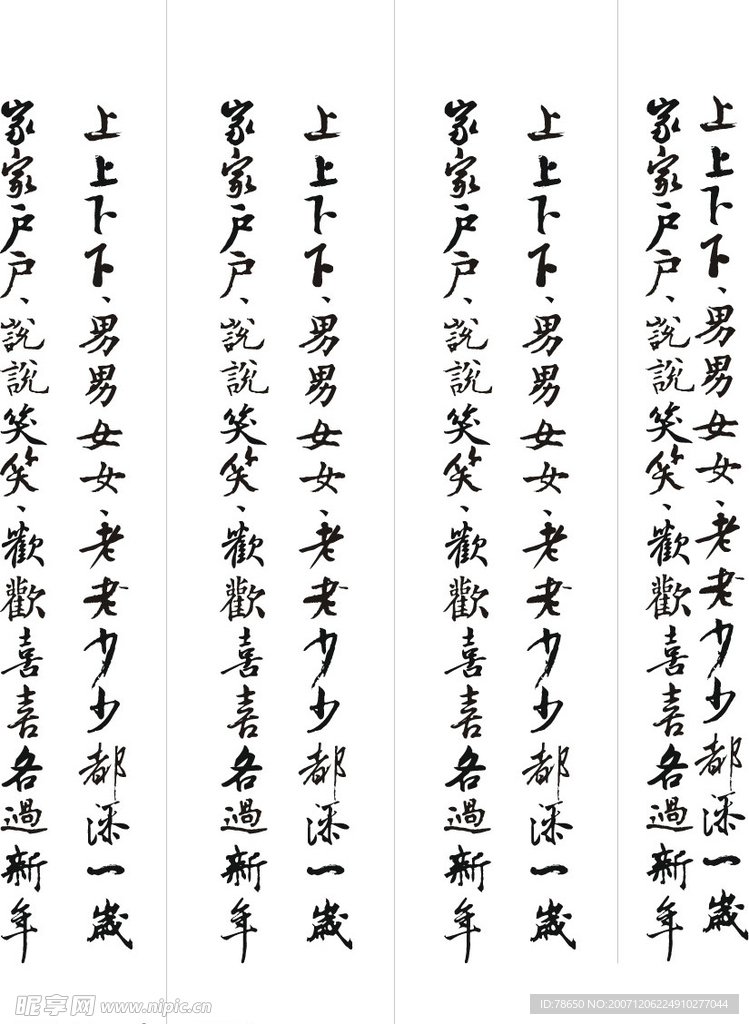 上上下下、男男女女、老老少少都添一歲
家家户户、說說笑笑、歡歡喜喜各過新年
上上下下、男男女女、老老少少都添一歲
家家户户、說說笑笑、歡歡喜喜各過新年
上上下下、男男女女、老老少少都添一歲
家家户户、說說笑笑、歡歡喜喜各過新年
上上下下、男男女女、老老少少都添一歲
家家户户、說說笑笑、歡歡喜喜各過新年
昵享网 www.nipic.cn
ID:78650 NO:20071206224910277044